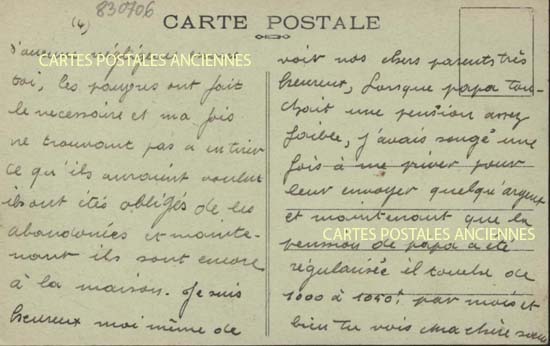 (4) 830706
CARTE POSTALE
CARTES POSTALES ANCIENNES
toi, les pauvres ont fait
le necessaire et ma fois
ne trouvant pas a en tirer
ce qu'ils auraient voulu
ils ont étés obligés de les
abandonnées et mainte-
nant ils sont encore
à la maison. Je suis
heureux moi même de
voir nos chers parents très
heureux, Lorsque papa tou-
chait une pension assez
faible, j'avais songé une
fois à me priver pour
leur envoyer quelqu'argent
et maintenant que la
CARTES POSTALES ANCIENNES
pension de papa a été
régularisée il touche de
1000 à 1050f par mois et
bien tu vois ma chère soeur